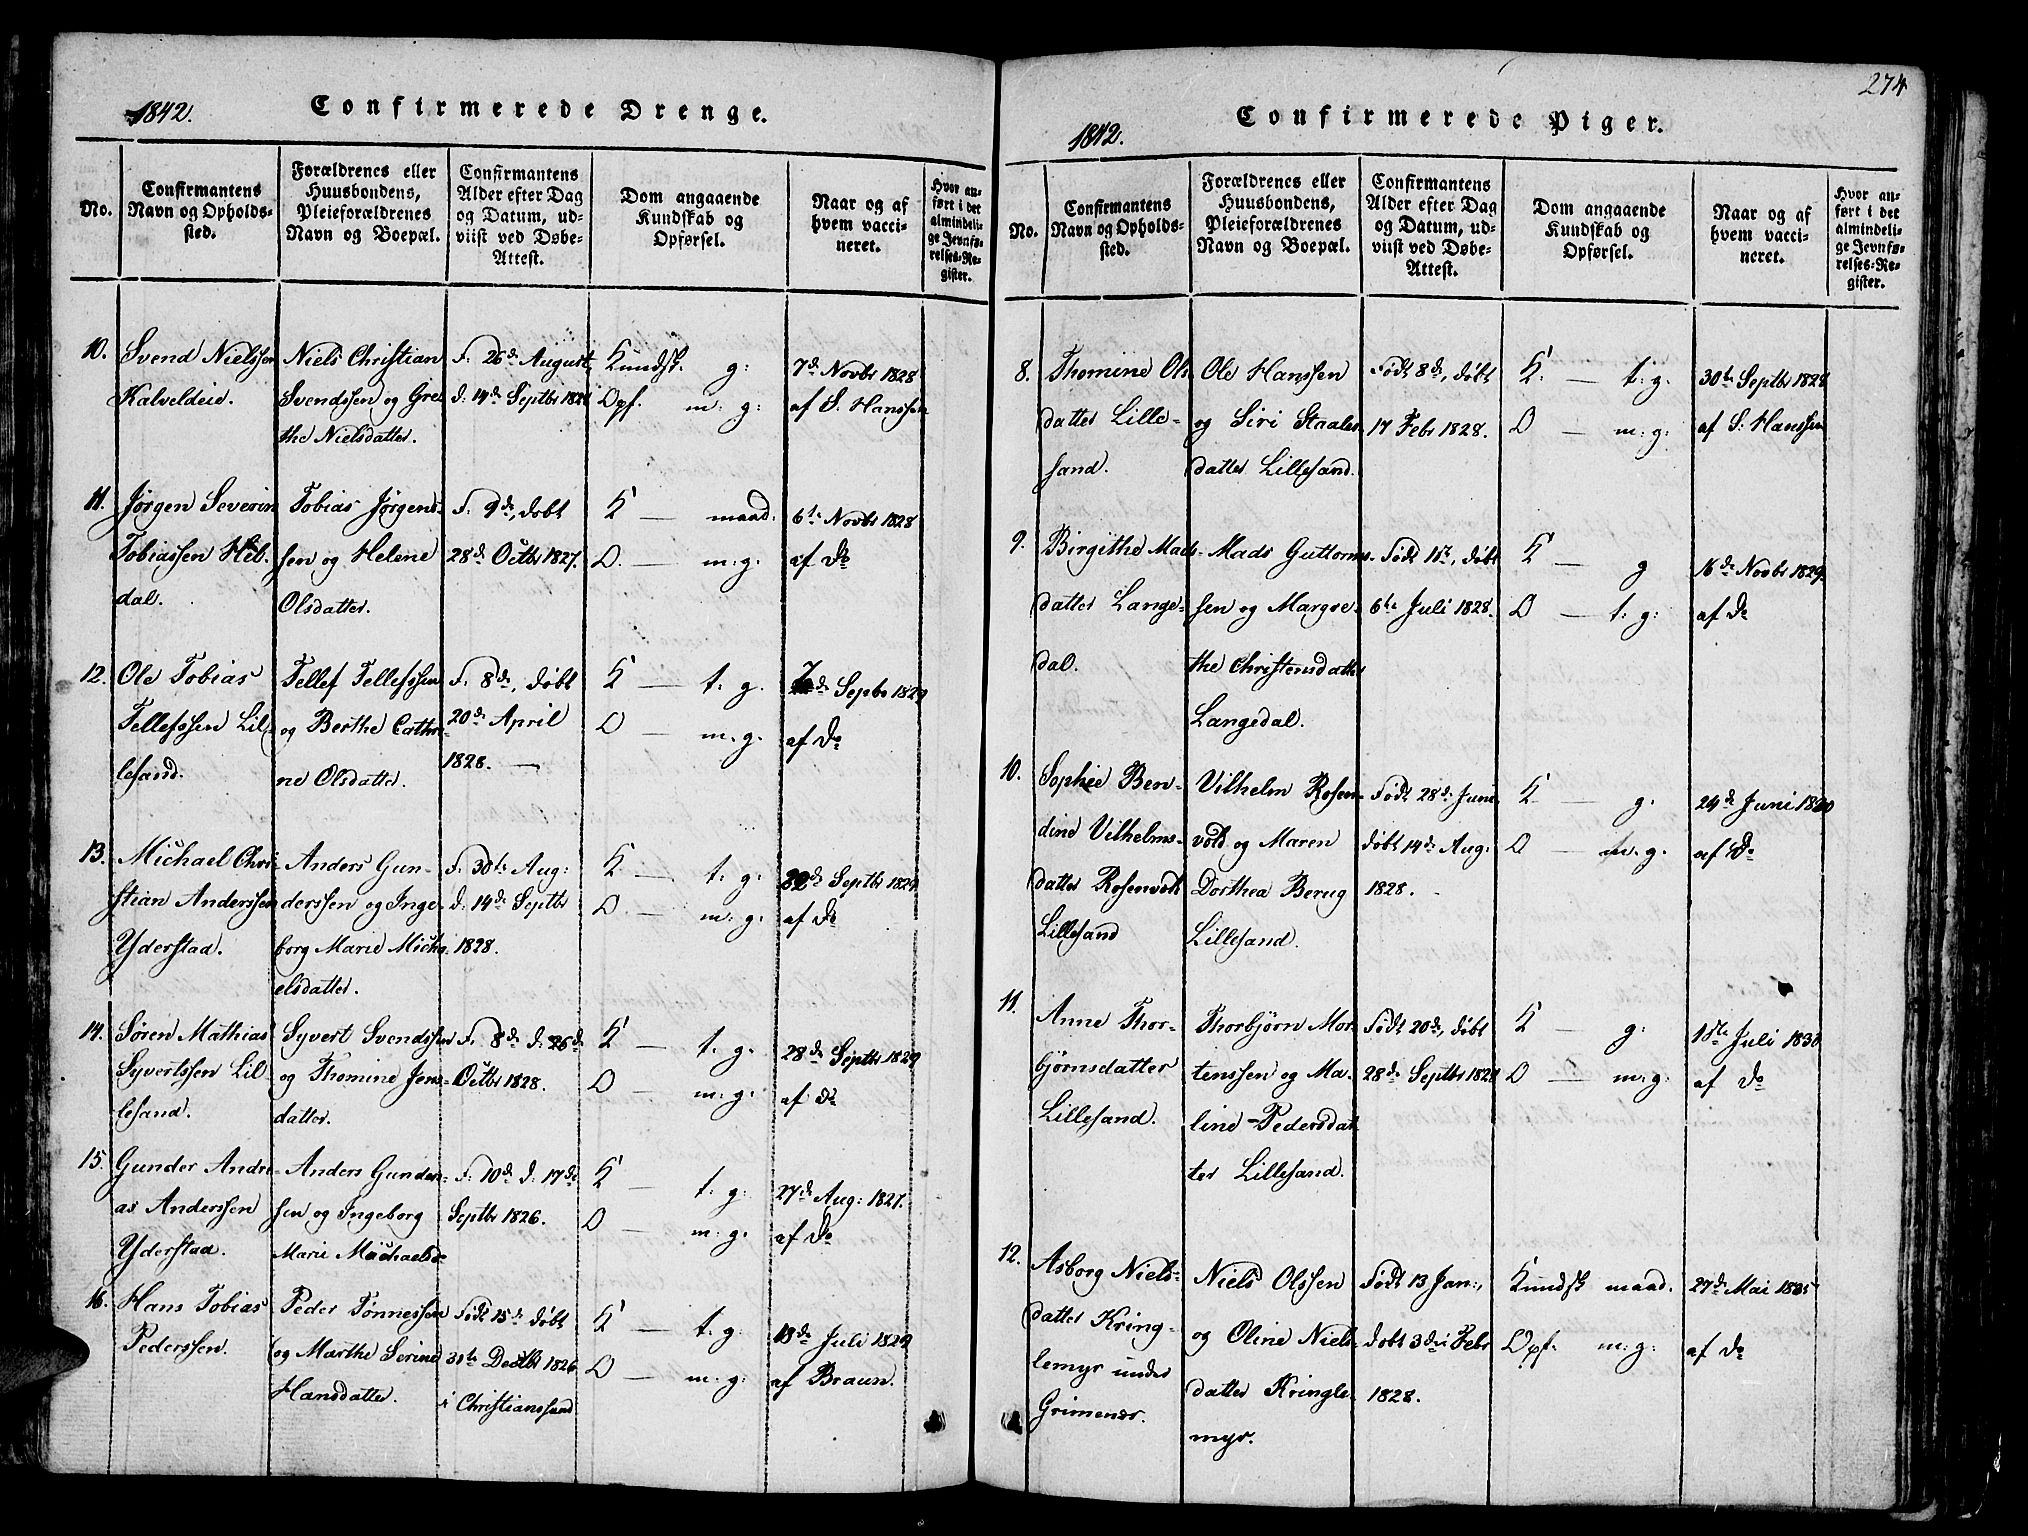 1842. Confirmerede Drenge.
No.
Confirmantens
Navn og Opholds-
sted.
Forældrenes eller
Huusbondens,
Pleieforældrenes
Navn og Boepæl.
Confirmantens
Alder efter Dag
og Datum, ud-
viist ved Døbe-
Attest.
Dom angaaende
Kundskab og
Opførsel.
Naar og af
hvem vacci-
neret.
Hvor an-
ført i det
almindeli-
ge Jevnfø-
relses-Re-
gister.
10.
Svend Nielssen
Kalveldeie.
Niels Christian
Svendssen og Gre-
the Nielsdatter.
F. 26de August,
d. 14de Septbr
Kundsk. g:
Opf. m: g:
7de Novbr 1828
af S. Hanssen
11.
Jørgen Severin
Tobiassen Heb-
dal.
Tobias Jørgens-
sen og Helene
Olsdatter.
F. 9de, døbt
28de Octbr 1827.
K — maad:
O. — m: g:
6te Novbr 1828
af Do
12.
Ole Tobias
Tellefssen Lil-
lesand.
Tellef Tellefssen
og Berthe Cathri-
ne Olsdatter.
F. 8de, døbt
20de April
1828. —
K — t. g.
O — m. g.
Septbr 1829
af Do
13.
Michael Chri-
stian Anderssen
Yderstad.
Anders Gun-
derssen og Inge-
borg Marie Micha-
elsdatter.
F. 30te Aug:
d: 14de Septbr
1828.
K — t: g:
O. — m: g:
Septbr 1829
af Do
14.
Søren Mathias
Syvertssen Lil-
lesand.
Syvert Svendssen
og Thomine Jens-
datter.
F. 8de d: 26de
Octbr 1828.
K — t: g:
O — m: g:
28de Septbr 1829
af Do
15.
Gunder Andre-
as Anderssen
Yderstad.
Anders Gunders-
sen og Ingeborg
Marie Michaelsd.
F. 10de d: 17de
Septbr 1826.
K — t: g:
O — m: g:
27de Aug: 1827.
af Do
16.
Hans Tobias
Pederssen.
Peder Tønnessen
og Marthe Serine
Hansdatter.
Født 15de døbt
31te Decbr 1826
i Christianssand
K — t: g:
O — m: g:
18de Juli 1829
af Braun.
274
1842. Confirmerede Piger.
No.
Confirmantens
Navn og Opholds-
sted.
Forældrenes eller
Huusbondens,
Pleieforældrenes
Navn og Boepæl.
Confirmantens
Alder efter Dag
og Datum, ud-
viist ved Døbe-
Attest.
Dom angaaende
Kundskab og
Opførsel.
Naar og af
hvem vacci-
neret.
Hvor an-
ført i det
almindeli-
ge Jevnfø-
relses-Re-
gister.
8.
Thomine Ols-
datter Lille-
sand.
Ole Hanssen
og Siri Staales-
datter Lillesand.
Født 8de, døbt
17 Febr 1828.
K. — t. g.
O — m: g:
30te Septbr 1828
af S: Hanssen
9.
Birgithe Mads-
datter Lange-
dal.
Mads Guttorms-
sen og Margre-
the Christensdatter
Langedal.
Født 1te, døbt
6te Juli 1828.
K — g
O — t: g:
16de Novbr 1829.
af Do
10.
Sophie Ben-
dine Vilhelms-
datter Rosenvold
Lillesand
Vilhelm Rosen-
vold og Maren
Dorthea Berug
Lillesand.
Født 28de Juni
døbt 14de Aug:
1828.
K — g.
O — m. g.
24de Juni 1830
af Do
11.
Anne Thor-
bjørnsdatter
Lillesand.
Thorbjørn Mor-
tenssen og Ma-
line Pedersdat-
ter Lillesand.
Født 20de, døbt
28de Septbr 1828
K — g:
O — m: g:
1ste Juli 1830
af Do
12.
Asborg Niels-
datter Kring-
lemyr under
Grimenes.
Niels Olssen
og Oline Niels-
datter Kringle-
myr.
Født 13 Jan:,
døbt 3die Febr
1828.
Kundsk maad.
Opf. m: g:
27de Mai 1835
af Do